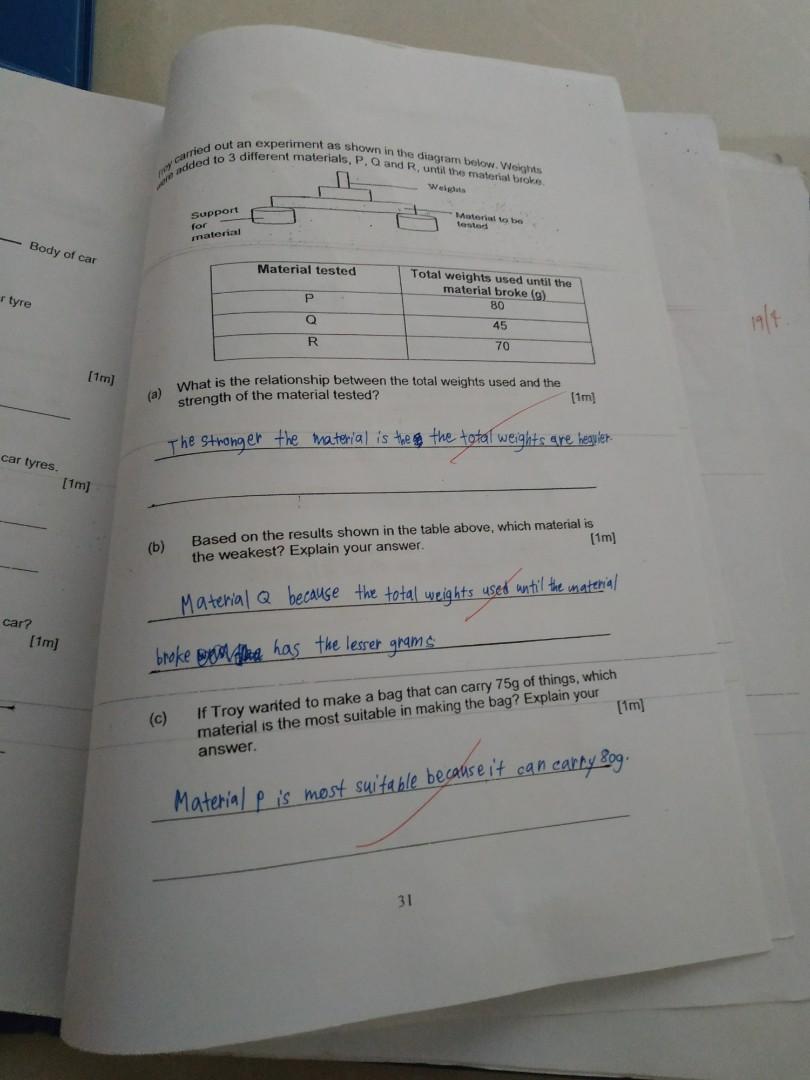 Troy carried out an experiment as shown in the diagram below. Weights
were added to 3 different materials, P, Q and R, until the material broke.
Weights
Support
for
material
Material to be
tested
Material tested
Total weights used until the
material broke (g)
P
80
Q
45
R
70
(a) What is the relationship between the total weights used and the
strength of the material tested?
[1m]
The stronger the material is the the total weights are heavier.
(b) Based on the results shown in the table above, which material is
the weakest? Explain your answer.
[1m]
Material Q because the total weights used until the material
broke has the lesser grams
(c) If Troy wanted to make a bag that can carry 75g of things, which
material is the most suitable in making the bag? Explain your
answer.
[1m]
Material P is most suitable because it can carry 80g.
31
Body of car
r tyre
[1m]
car tyres.
[1m]
car?
[1m]
19/4